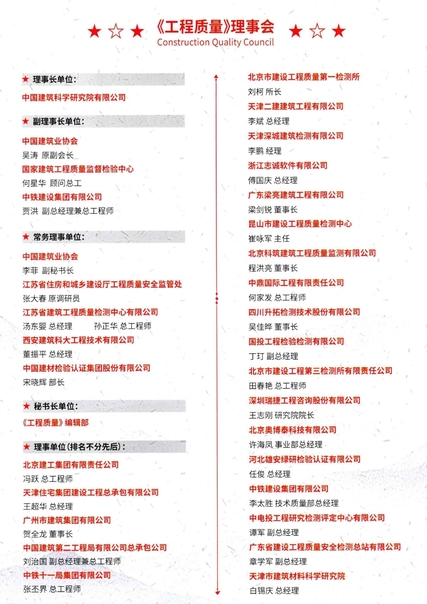 《工程质量》理事会
Construction Quality Council
理事长单位：
中国建筑科学研究院有限公司
副理事长单位：
中国建筑业协会
吴涛 原副会长
国家建筑工程质量监督检验中心
何星华 顾问总工
中铁建设集团有限公司
贾洪 副总经理兼总工程师
常务理事单位：
中国建筑业协会
李菲 副秘书长
江苏省住房和城乡建设厅工程质量安全监管处
张大春 原调研员
江苏省建筑工程质量检测中心有限公司
汤东婴 总经理 孙正华 总工程师
西安建筑科大工程技术有限公司
董振平 总经理
中国建材检验认证集团股份有限公司
宋晓辉 部长
秘书长单位：
《工程质量》编辑部
理事单位（排名不分先后）：
北京建工集团有限责任公司
冯跃 总工程师
天津住宅集团建设工程总承包有限公司
王超华 总经理
广州市建筑集团有限公司
贺全龙 董事长
中国建筑第二工程局有限公司总承包公司
刘治国 副总经理兼总工程师
中铁十一局集团有限公司
张丕界 总工程师
北京市建设工程质量第一检测所
刘柯 所长
天津二建建筑工程有限公司
李斌 总经理
天津深城建筑检测有限公司
李鹏 经理
浙江志诚软件有限公司
傅国庆 总经理
广东梁亮建筑工程有限公司
梁剑锐 董事长
昆山市建设工程质量检测中心
崔咏军 主任
北京科筑建筑工程质量监测有限公司
程洪亮 董事长
中鼎国际工程有限责任公司
何家发 总工程师
四川升拓检测技术股份有限公司
吴佳晔 董事长
国投工程检验检测有限公司
丁玎 副总经理
北京市建设工程第三检测所有限责任公司
田春艳 总工程师
深圳瑞捷工程咨询股份有限公司
王志刚 研究院院长
北京奥博泰科技有限公司
许海凤 事业部总经理
河北雄安绿研检验认证有限公司
任俊 总经理
中铁建设集团有限公司
李太胜 技术质量部总经理
中电投工程研究检测评定中心有限公司
谭军 副总经理
广东省建设工程质量安全检测总站有限公司
章学军 副总经理
天津市建筑材料科学研究院
白锡庆 总经理